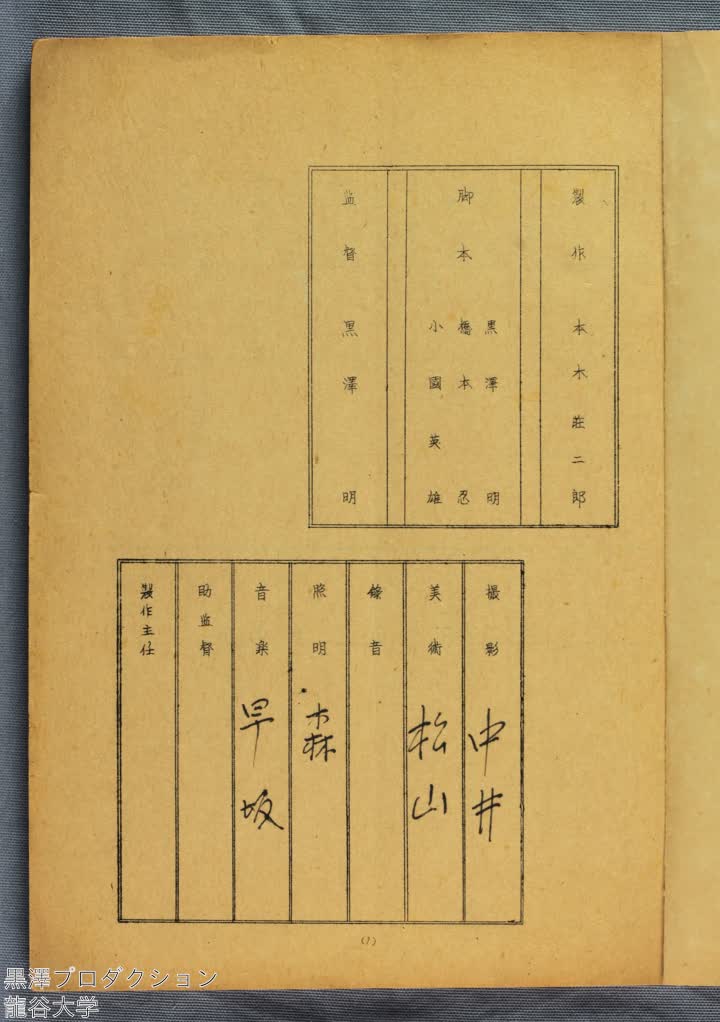 製作 本木荘二郎
脚本 黒澤明
橋本忍
小國英雄
監督 黒澤明
撮影 中井
美術 松山
録音
照明 森
音楽 早坂
助監督
製作主任
(1)
黒澤プロダクション
龍谷大学